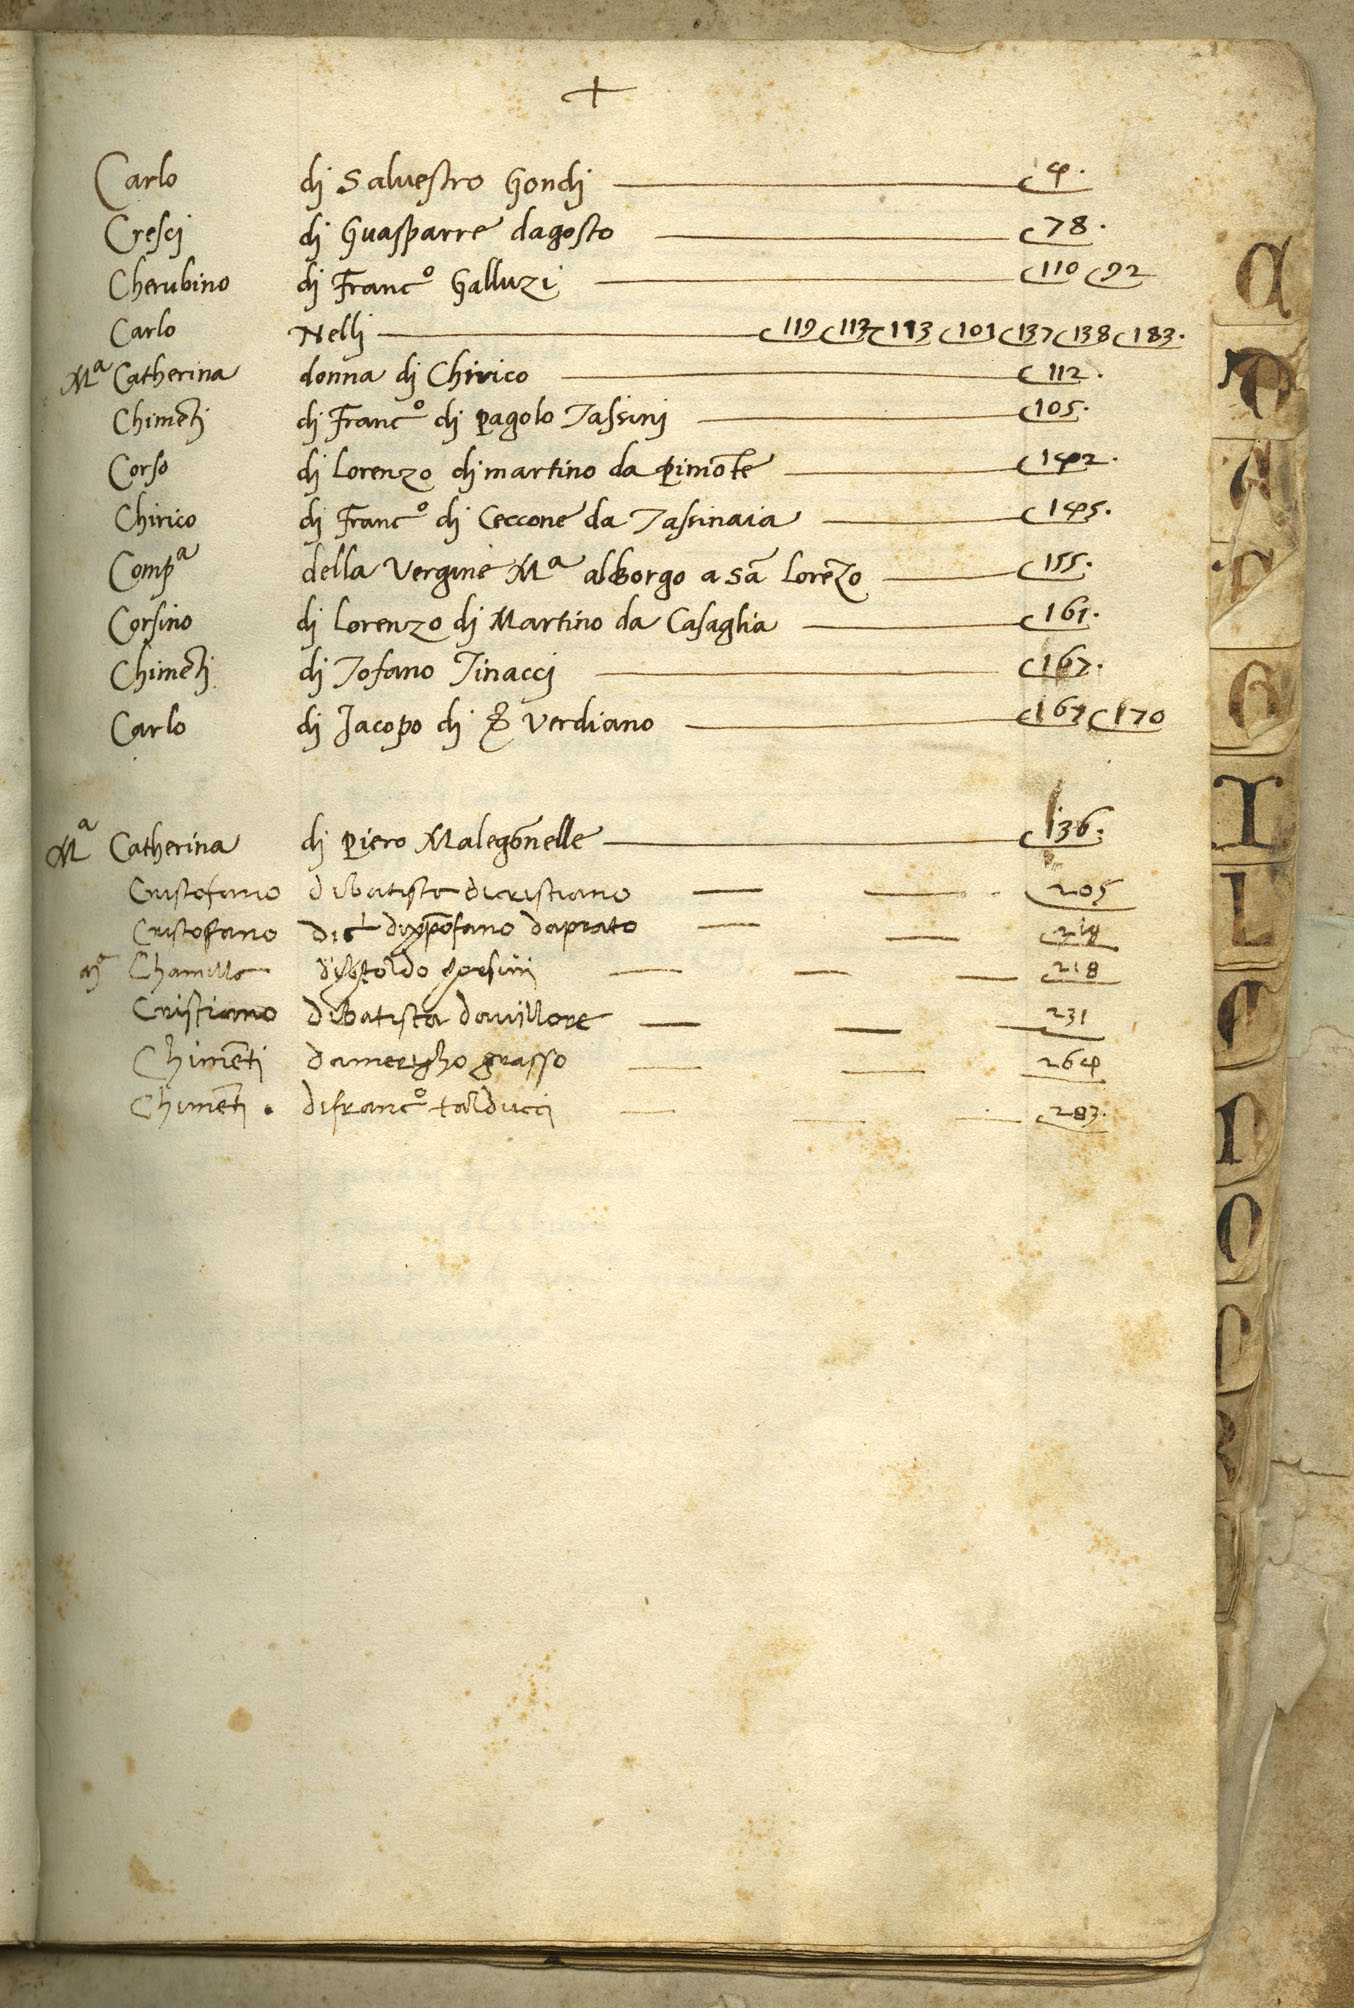 +
Carlo di Salvestro Gondi c 4.
Cresci di Guasparre dagosto c 78.
Cherubino di Franc.º Galluzi c 110 c 92
Carlo Nelli c 119 c 113 c 193 c 101 c 137 c 138 c 183.
Mª Catherina donna di Chirico c 112.
Chimēti di Franc.º di pagolo Tassini c 105.
Corso di Lorenzo di martino da Pimōte c 142.
Chirico di Franc.º di Ceccone da Tassinaia c 145.
Compª della Vergine Mª al borgo a sā Lorēzo c 155.
Corsino di Lorenzo di Martino da Casaglia c 161.
Chimēti di Tofano Tinacci c 167.
Carlo di Jacopo di Verdiano c 167 c 170
Mª Catherina di Piero Malegōnelle c 136.
Cristofano dibatista dicristiano c 205
Cristofano daprato
Chamilla c 218
Cristiano dibatista davillore c 231
Chimēti damerigho grasso c 264
Chimēti. difranc.º talducci c 283.
A
L
I
O
P
R